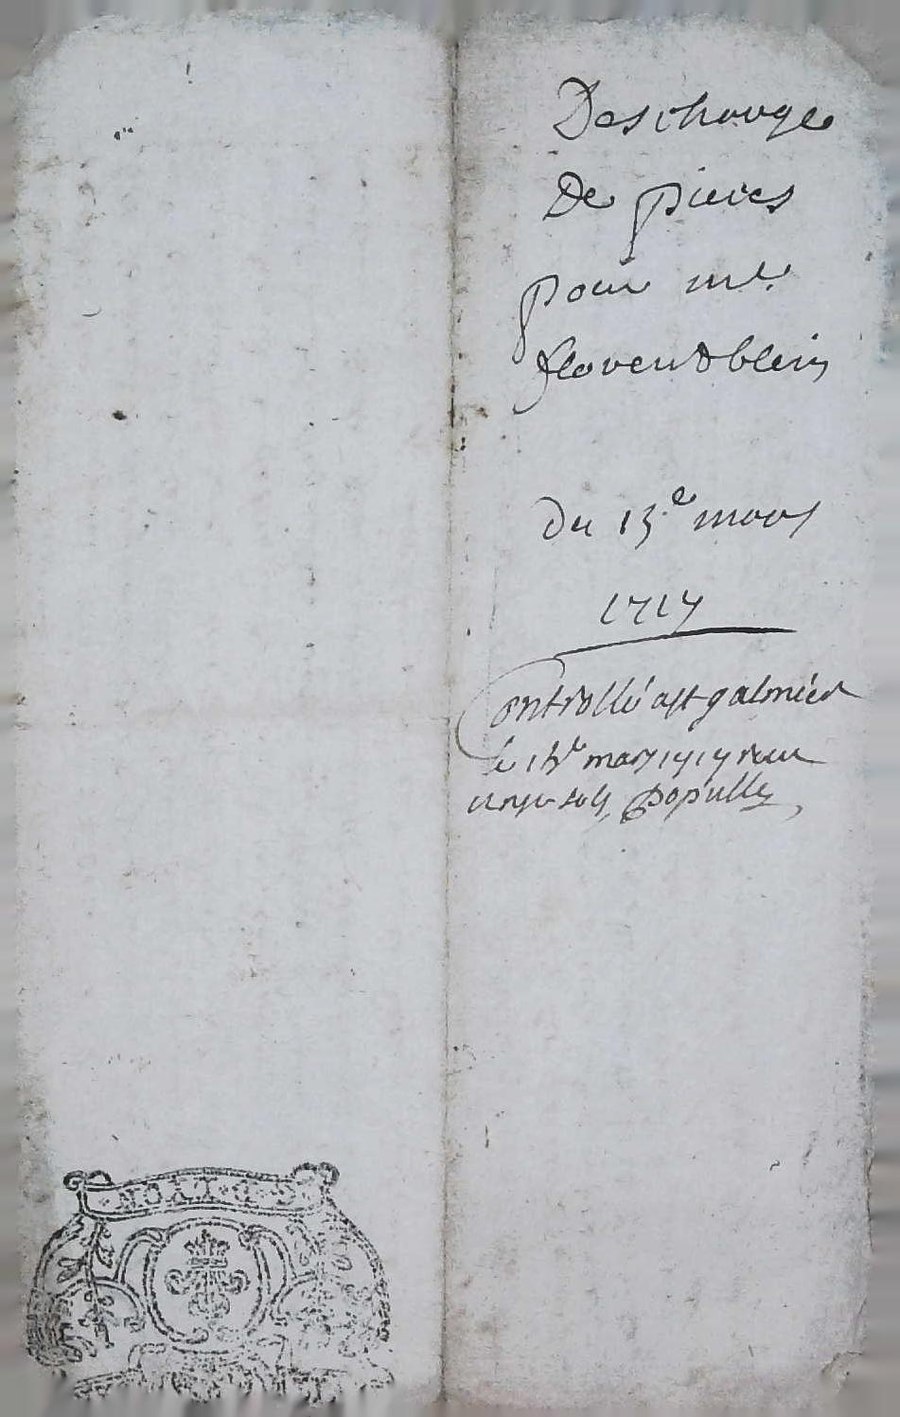 Descharge
De pieces
pour me.
florend blein
du 13e mars
1717
Controllé a st galmier
le 15e mars 1717 Receu
sols, Populle
G. D. LYON